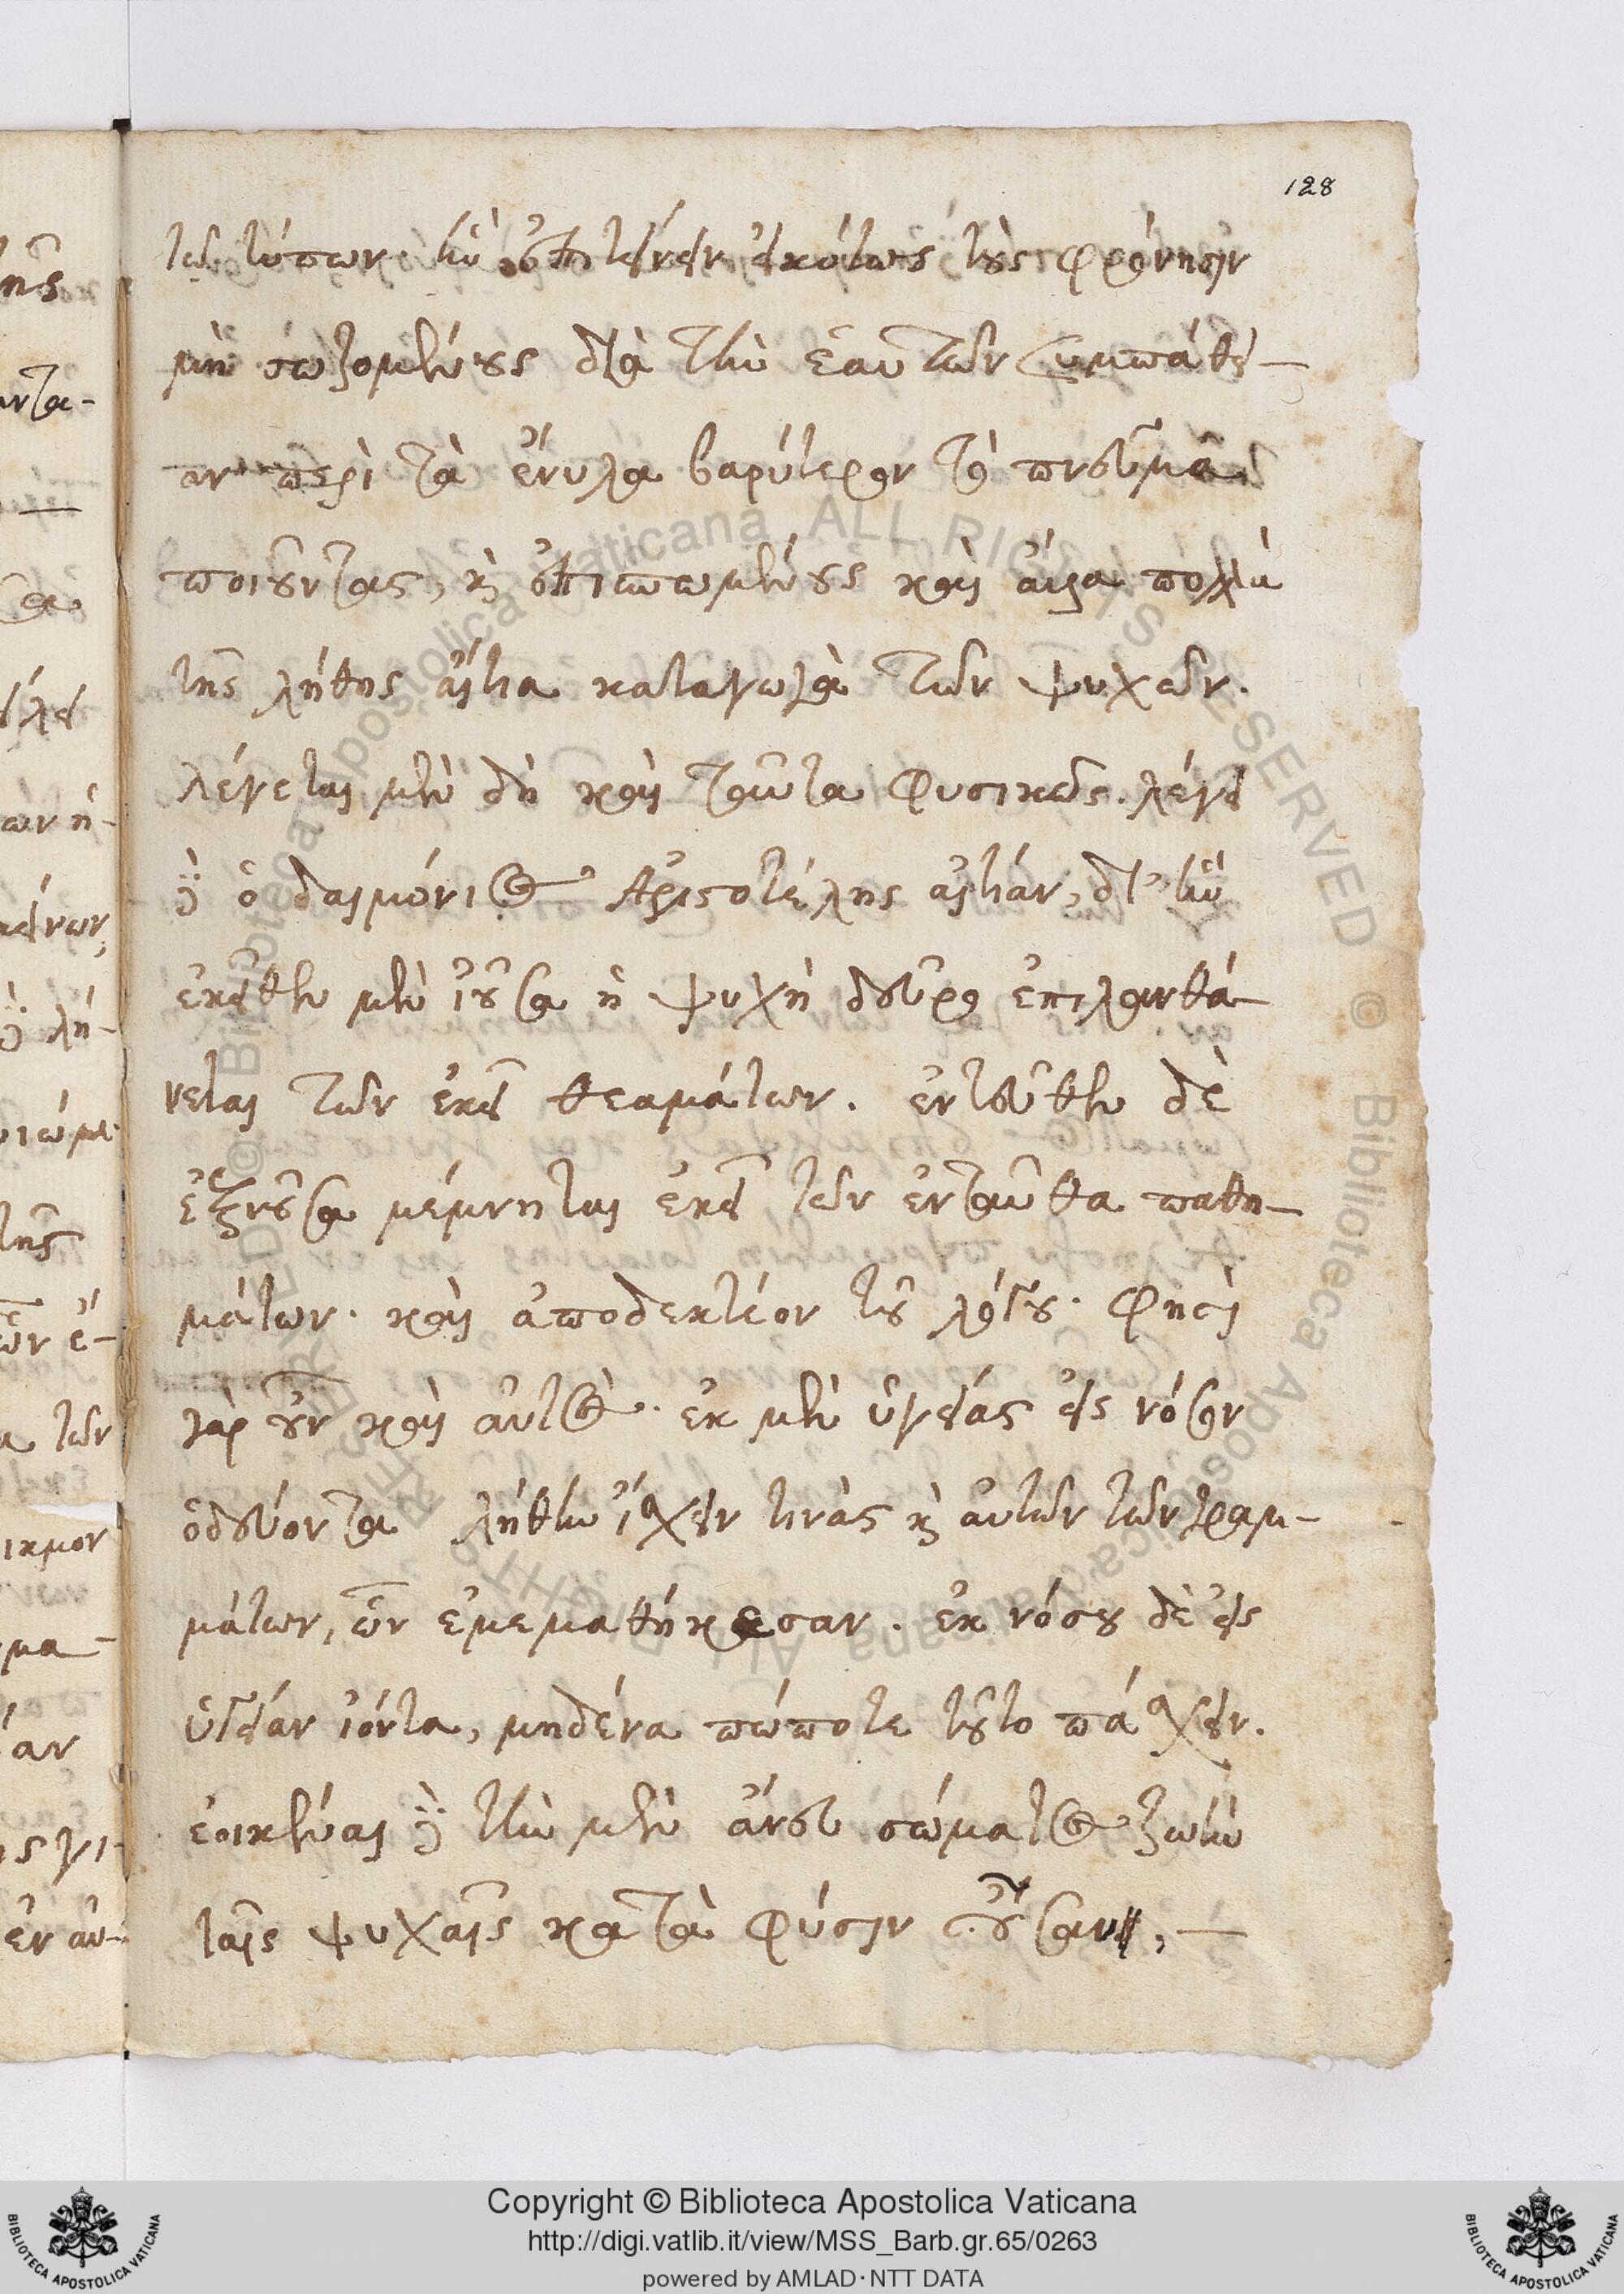 128
τῶν τύπων. ἣν ἐπιτείνειν εἰκότως τοὺς φρόνησιν
μὴ σωζομένους διὰ τὴν ἑαυτῶν συμπάθει-
αν περὶ τὰ ἔνυλα βαρύτερον τὸ πνεῦμα
ποιοῦντας, καὶ ἐπισπωμένους καὶ ἄλλα πολλὰ
τῆς λήθης αἴτια καταγωγὰ τῶν ψυχῶν.
λέγεται μὲν δὴ καὶ ταῦτα φυσικῶς. λέγει
δὲ ὁ δαιμόνιος Ἀριστοτέλης αἰτίαν, δι' ἣν
ἐκεῖθεν μὲν ἰοῦσα ἡ ψυχὴ δεῦρο ἐπιλανθά-
νεται τῶν ἐκεῖ θεαμάτων. ἐντεῦθεν δὲ
ἐξιοῦσα μέμνηται ἐκεῖ τῶν ἐνταῦθα παθη-
μάτων. καὶ ἀποδεκτέον τοῦ λόγου. φησὶ
γὰρ οὖν καὶ αὐτὸς. ἐκ μὲν ὑγείας εἰς νόσον
ὁδεύοντα λήθην ἴσχειν τινὰς καὶ αὐτῶν τῶν γραμ-
μάτων, ὧν ἐμεμαθήκεσαν. ἐκ νόσου δὲ εἰς
ὑγείαν ἰόντα, μηδένα πώποτε τοῦτο πάσχειν.
ἐοικέναι δὲ τὴν μὲν ἄνευ σώματος ζωὴν
ταῖς ψυχαῖς κατὰ φύσιν οὖσαν,
Copyright © Biblioteca Apostolica Vaticana
http://digi.vatlib.it/view/MSS_Barb.gr.65/0263
powered by AMLAD·NTT DATA